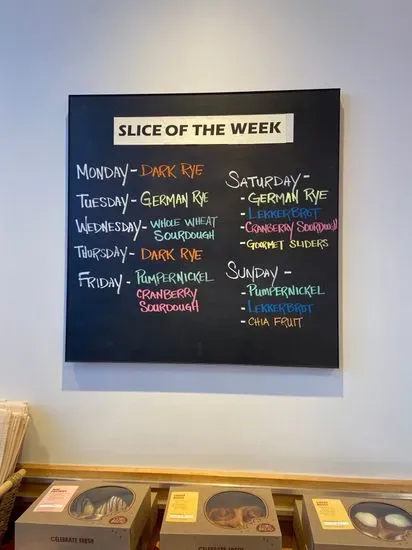 SLICE OF THE WEEK
MONDAY - DARK RYE
TUESDAY - GERMAN RYE
WEDNESDAY - WHOLE WHEAT
SOURDOUGH
THURSDAY - DARK RYE
FRIDAY - PUMPERNICKEL
CRANBERRY
SOURDOUGH
SATURDAY -
- GERMAN RYE
- LEKKERBROT
- CRANBERRY SOURDOUGH
- GOURMET SLIDERS
SUNDAY -
- PUMPERNICKEL
- LEKKERBROT
- CHIA FRUIT
CELEBRATE FRESH
CELEBRATE FRESH